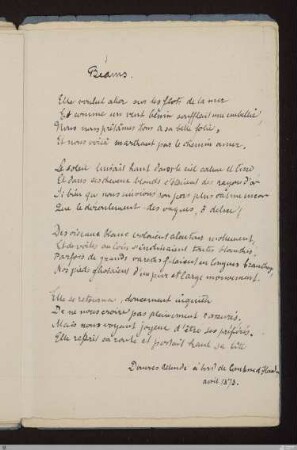 Beams.
Elle voulut aller sur les flots de la mer
Et comme un vent bénin soufflait une embellie,
Nous nous prêtâmes tous à sa belle folie,
Et nous voici marchant par le chemin amer.
Le soleil luisait haut dans le ciel calme et lisse
Et dans ses cheveux blonds c'étaient des rayons d'or
Si bien que nous suivions son pas plus calme encor
Que le déroulement des vagues, ô délice!
Des oiseaux blancs volaient alentour mollement,
Et des voiles au loin s'inclinaient toutes blanches,
Parfois de grands varechs filaient en longues branches,
Nos pieds glissaient d'un pur et large mouvement.
Elle se retourna, doucement inquiète
De ne nous croire pas pleinement rassurés,
Mais nous voyant joyeux d'être ses préférés,
Elle reprit sa route et portait haut sa tête
Douvres-Ostende à bord de la Comtesse de Flandre
avril 1873.